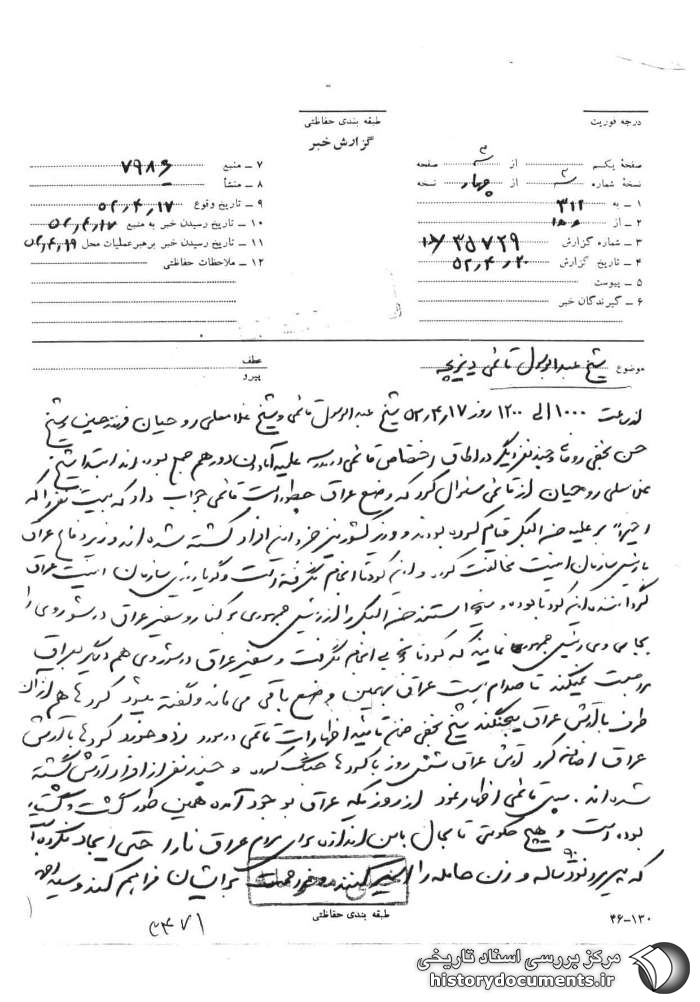 درجه فوریت
طبقه بندی حفاظتی
گزارش خبر
صفحه یکم از ۳ صفحه
نسخه شماره ۳ از چهار نسخه
۱ ـ به ۳۱۲
۲ ـ از
۳ ـ شماره گزارش ۳۵۷۲۹
۴ ـ تاریخ گزارش ۵۲٫۴٫۲۰
۵ ـ پیوست
۶ ـ گیرندگان خبر
۷ ـ منبع ۷۹۸۶
۸ ـ منشأ
۹ ـ تاریخ وقوع ۵۲٫۴٫۱۷
۱۰ ـ تاریخ رسیدن خبر به منبع ۵۲٫۴٫۱۷
۱۱ ـ تاریخ رسیدن خبر برهبر عملیات محل ۵۲٫۴٫۱۹
۱۲ ـ ملاحظات حفاظتی
موضوع شیخ عبدالرسول قائمی
عطف
پیرو
از ساعت ۱۰۰۰ الی ۱۲۰۰ روز ۵۲٫۴٫۱۷ شیخ عبدالرسول قائمی و شیخ غلامعلی روحیان فرزند حسین و شیخ
حسن نجفی و چند نفر دیگر در اطاق اختصاصی قائمی در مدرسه علمیه آبادان دور هم جمع بودند ابتدا شیخ
غلامعلی روحیان از قائمی سئوال کرد که وضع عراق چطور است قائمی جواب داد که بیست نفر را که
اخیراً بر علیه حسن البکر قیام کرده بودند و وزیر کشور نیز جزو این افراد کشته شده اند و وزیر دفاع عراق
با رئیس سازمان امنیت مخالفت کرده و این کودتا انجام نگرفته است و گویا رئیس سازمان امنیت عراق
گرداننده این کودتا بوده و میخواستند حسن البکر را از رئیس جمهوری بر کنار و سفیر عراق در شوروی را
بجای وی رئیس جمهور نمایند که کودتا بخوبی انجام نگرفت و سفیر عراق در شوروی هم دیگر بعراق
مراجعت نمیکند تا صدام هست عراق بهمین وضع باقی می ماند و گفته میشود کردها هم از آن
طرف با ارتش عراق میجنگند شیخ نجفی ضمن تائید اظهارات قائمی در مورد زد و خورد کردها با ارتش
عراق اضافه کرد ارتش عراق شش روز با کردها جنگ کرده و چند نفر از افراد ارتش کشته
شده اند. سپس قائمی اظهار نمود از روزیکه عراق بوجود آمده همین طور کشت و کشتار
بوده است و هیچ حکومتی تا بحال باین اندازه برای مردم عراق ناراحتی ایجاد نکرده است
که پیرمرد نود ساله و زن حامله را برایشان فراهم کنند و سید احمد
طبقه بندی حفاظتی
۴۶-۱۳۰
مرکز بررسی اسناد تاریخی
historydocuments.ir